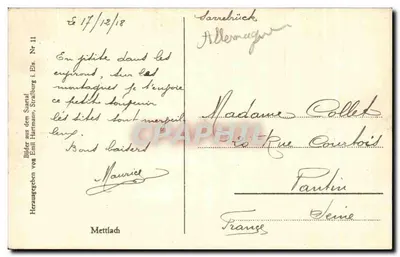 Le 17/12/18
En petite dans les
environs, sur les
montagnes je t'envoie
ce petit souvenir
les sites sont merveil
leux.
Bons baisers
Maurice
Mettlach
Bilder aus dem Saartal
Herausgegeben von Emil Hartmann, Straßburg i. Els. Nr 11
Sarrebrück
Allemagne
Madame Collet
Rue Courbois
Pantin
Seine
France